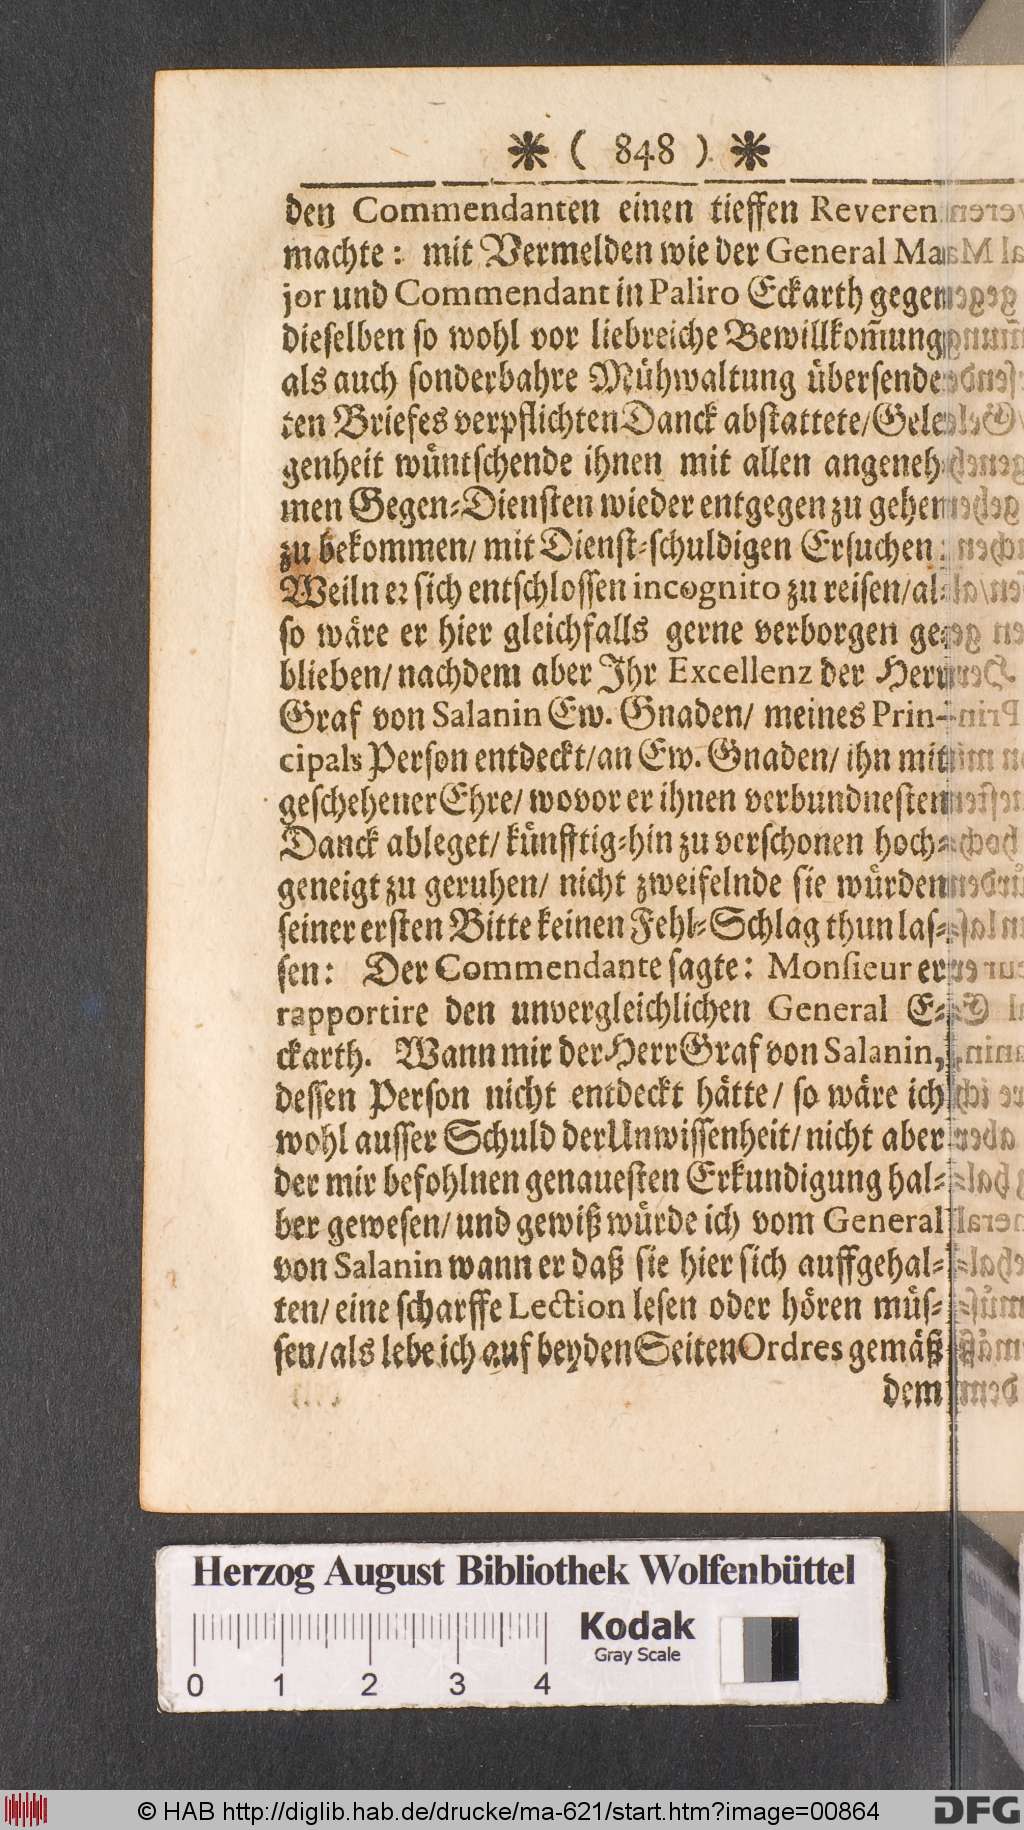 ✱ ( 848 ) ✱
den Commendanten einen tieffen Reveren
machte: mit Vermelden wie der General Ma
jor und Commendant in Paliro Eckarth gegen
dieselben so wohl vor liebreiche Bewillkom̃ung
als auch sonderbahre Mühwaltung übersende
ten Briefes verpflichten Danck abstattete/Gele
genheit wüntschende ihnen mit allen angeneh
men Gegen-Diensten wieder entgegen zu gehen
zu bekommen/ mit Dienst-schuldigen Ersuchen:
Weiln er sich entschlossen incognito zu reisen/al-
so wäre er hier gleichfalls gerne verborgen ge-
blieben/ nachdem aber Ihr Excellenz der Herr
Graf von Salanin Ew. Gnaden/ meines Prin-
cipals Person entdeckt/an Ew. Gnaden/ ihn mit
geschehener Ehre/ wovor er ihnen verbundnesten
Danck ableget/ künfftig-hin zu verschonen hoch-
geneigt zu geruhen/ nicht zweifelnde sie würden
seiner ersten Bitte keinen Fehl-Schlag thun las-
sen: Der Commendante sagte: Monsieur er
rapportire den unvergleichlichen General E-
ckarth. Wann mir der Herr Graf von Salanin,
dessen Person nicht entdeckt hätte/ so wäre ich
wohl ausser Schuld der Unwissenheit/ nicht aber
der mir befohlnen genauesten Erkundigung hal-
ber gewesen/ und gewiß würde ich vom General
von Salanin wann er daß sie hier sich auffgehal-
ten/ eine scharffe Lection lesen oder hören müs-
sen/als lebe ich auf beyden Seiten Ordres gemäß
dem
Herzog August Bibliothek Wolfenbüttel
0 1 2 3 4
Kodak
Gray Scale
© HAB http://diglib.hab.de/drucke/ma-621/start.htm?image=00864
DFG